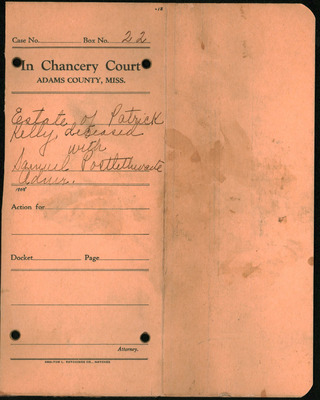 Case No. Box No. 22
In Chancery Court
ADAMS COUNTY, MISS.
Estate of Patrick
Kelly, diseased
with
Samuel Postlethwaite
Admr.
Action for
Docket Page
Attorney.